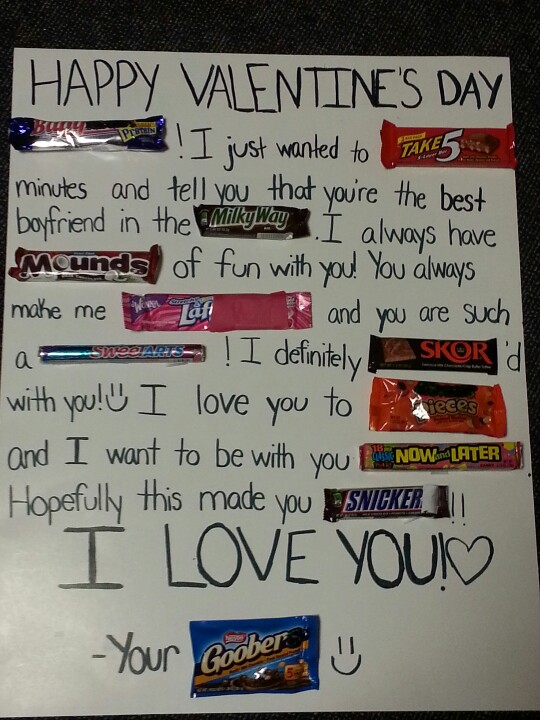 HAPPY VALENTINE'S DAY
Baby ! I just wanted to TAKE 5
minutes and tell you that you're the best
boyfriend in the Milky Way . I always have
Mounds of fun with you! You always
make me Wonka Laf and you are such
a SweeTARTS ! I definitely SKOR 'd
with you! I love you to pieces
and I want to be with you NOW and LATER
Hopefully this made you SNICKER !!
I LOVE YOU!
-Your Nestle Goobers